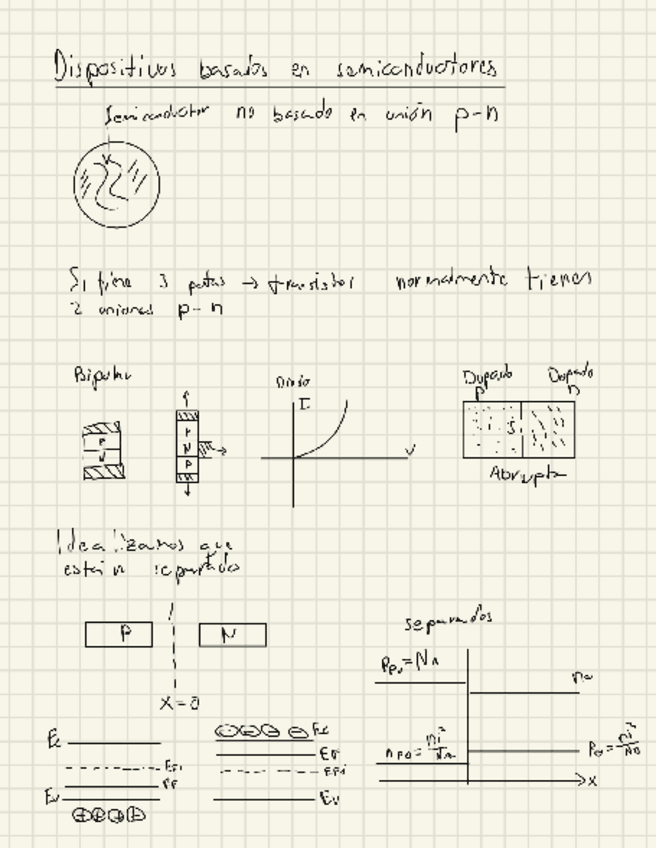 Dispositivos basados en semiconductores
Semiconductor no basado en unión p-n
Si tiene 3 patas → transistor normalmente tienen
2 uniones p-n
Bipolar
Diodo
Dopado
p
Dopado
n
P
N
P
N
P
I
V
Abrupta
Idealizamos que
están separados
P
N
X=0
separados
Ppo = NA
no
npo = ni²/NA
Po = ni²/ND
X
Ec
EFi
EF
Ev
⊕⊕⊕⊕
⊖⊖⊖ ⊖ Ec
EF
EFi
Ev